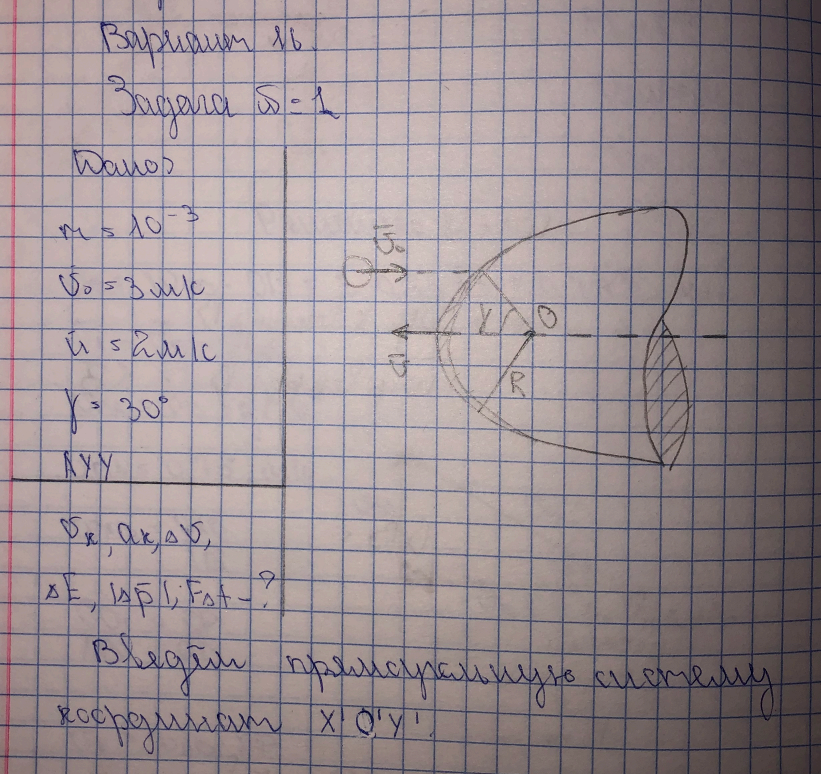 Вариант 16.
Задача № = 1
Дано:
m = 10⁻³
v₀ = 3 м/с
u = 2 м/с
γ = 30°
АУУ
vₖ, aₖ, Δv,
ΔE, |Δp̄|, FΔt - ?
v̄₀
γ
O
ū
R
Введём прямоугольную систему
координат X'O'Y'.